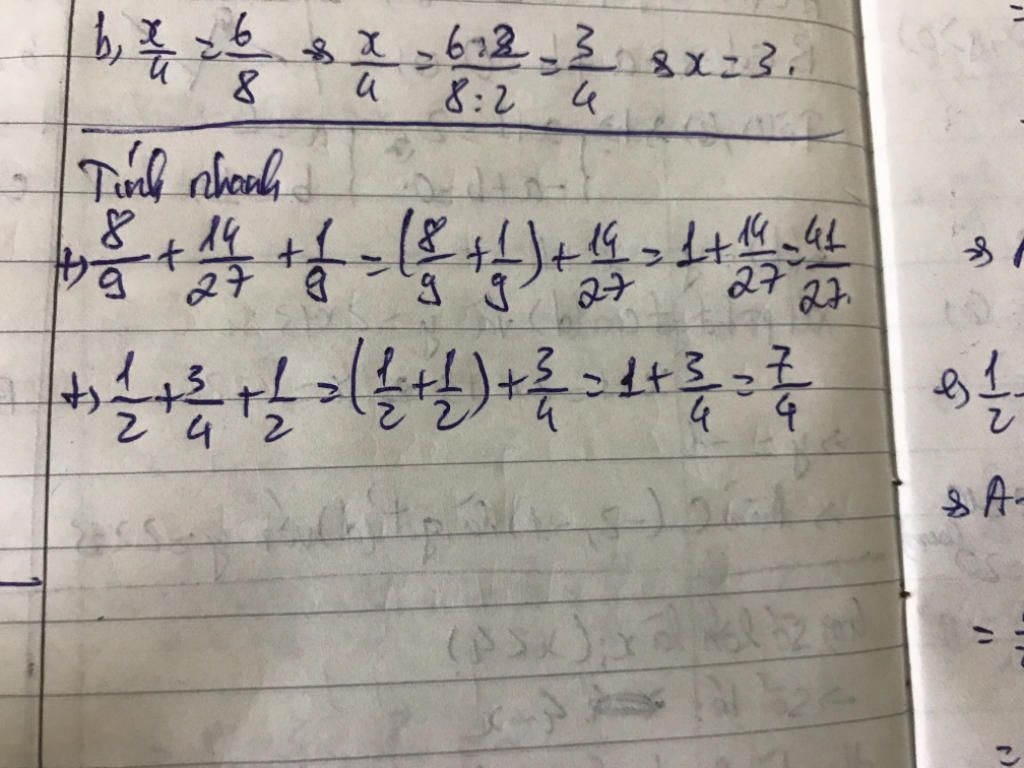 b, x/4 = 6/8 s x/4 = 6:2/8:2 = 3/4 s x = 3.
Tính nhanh
+) 8/9 + 14/27 + 1/9 = (8/9 + 1/9) + 14/27 = 1 + 14/27 = 41/27.
+) 1/2 + 3/4 + 1/2 = (1/2 + 1/2) + 3/4 = 1 + 3/4 = 7/4
e) 1/2
s A